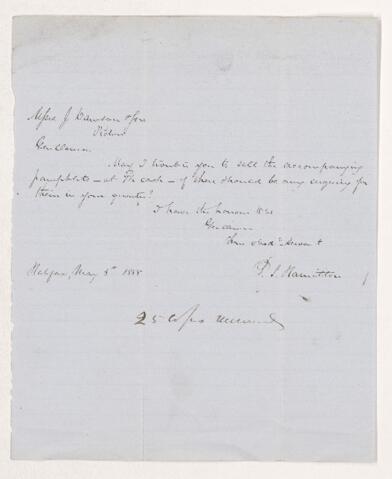 Messrs J Dawson & Son
Pictou
Gentlemen
May I trouble you to sell the accompanying
pamphlets — at 7½ each — if there should be any enquiry for
them in your quarter?
I have the honour to be
Gentlemen
Your obedt Servant
P. S. Hamilton
Halifax, May 3d 1858
25 Copies received